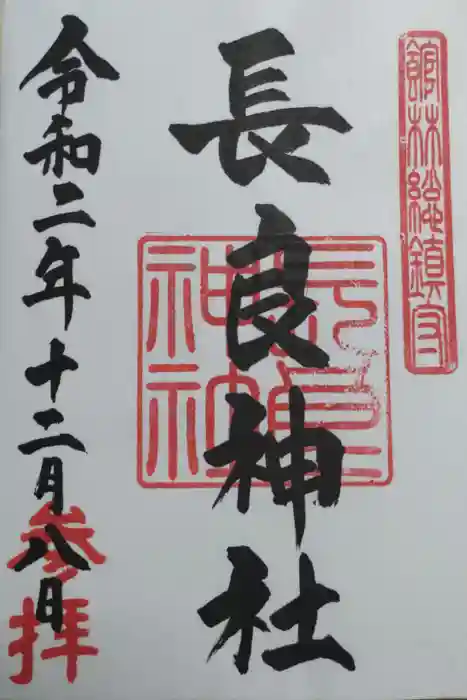 館林総鎮守
長良神社
長良神社
令和二年十二月八日
参拝